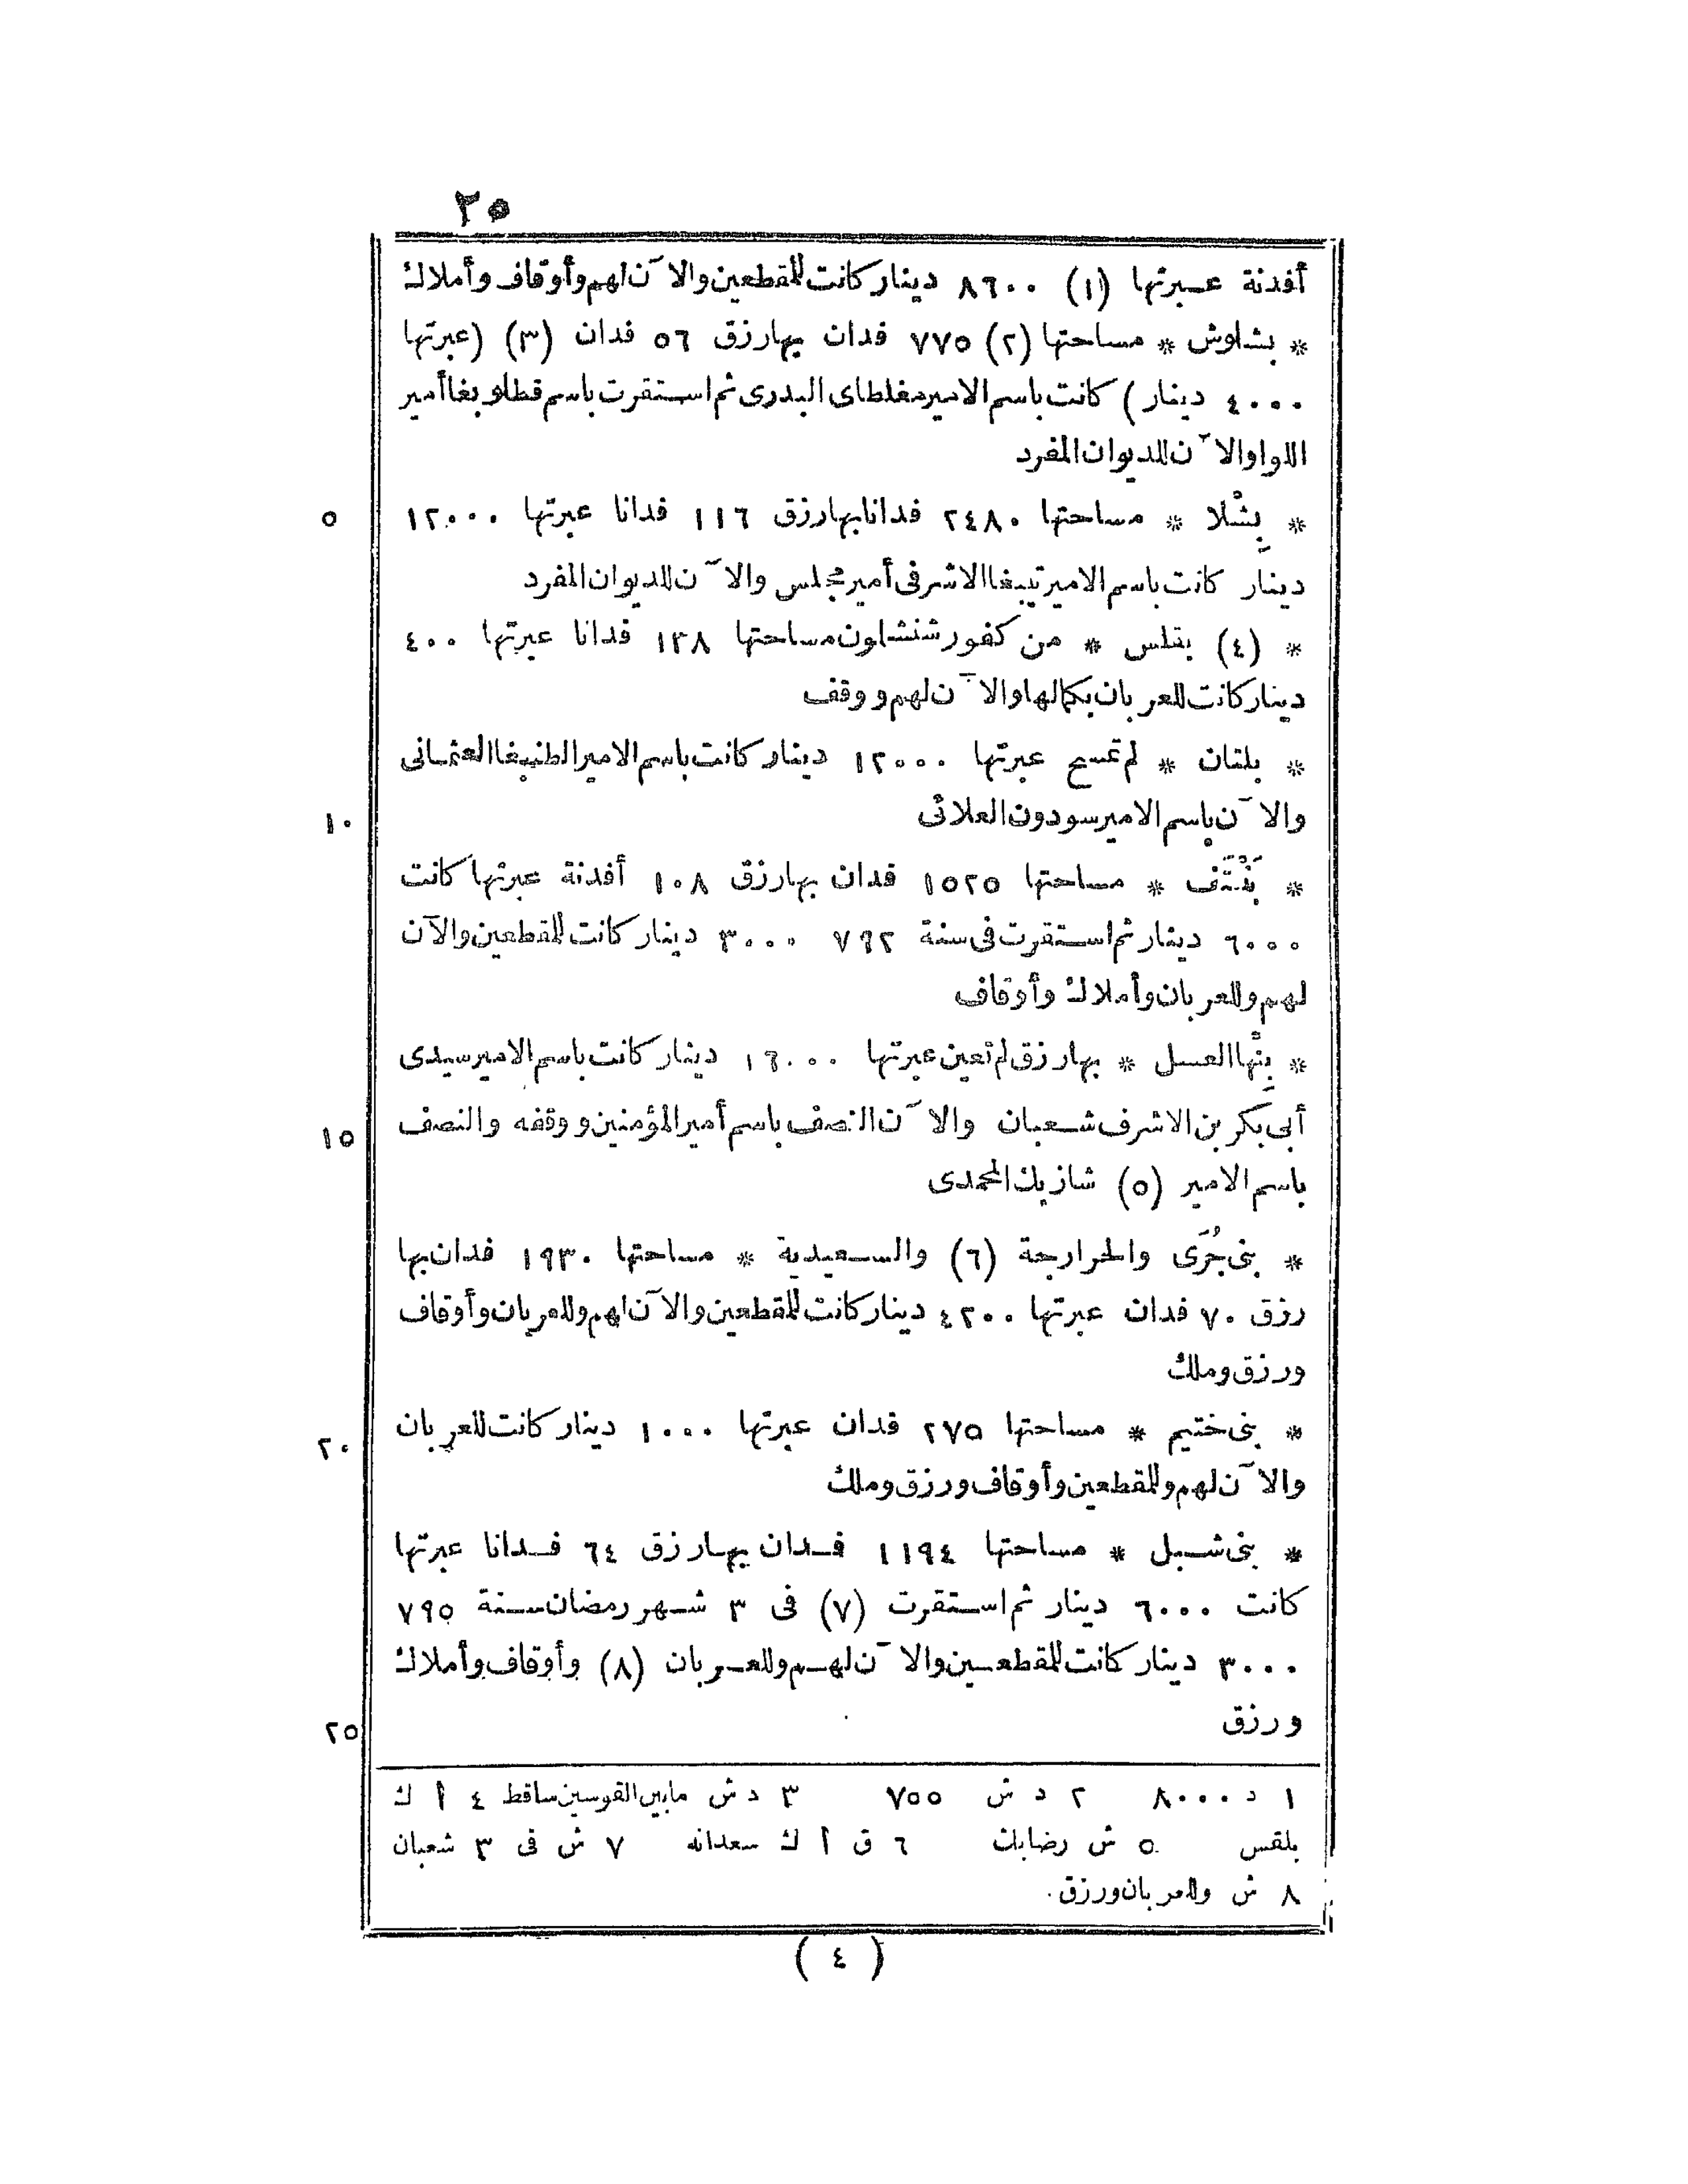 ٢٥
أفدنة عبرتها (١) ٨٦٠٠ دينار كانت للمقطعين والآن لهم وأوقاف وأملاك
* بشلوش * مساحتها (٢) ٧٧٥ فدان بها رزق ٥٦ فدان (٣) (عبرتها
٤٠٠٠ دينار) كانت باسم الامير مغلطاى البدرى ثم استقرت باسم قطلوبغا أمير
اللوا والآن للديوان المفرد
* بِشْلا * مساحتها ٢٤٨٠ فدانا بها رزق ١١٦ فدانا عبرتها ١٢٠٠٠
٥
دينار كانت باسم الامير تيبغا الاشرفى أمير مجلس والآن للديوان المفرد
* (٤) بقلس * من كفور شنشلون مساحتها ١٣٨ فدانا عبرتها ٤٠٠
دينار كانت للعربان بكمالها والآن لهم ووقف
* بلتان * لم تمسح عبرتها ١٢٠٠٠ دينار كانت باسم الامير الطنبغا العثمانى
والآن باسم الامير سودون العلائى
١٠
* مساحتها ١٥٢٥ فدان بها رزق ١٠٨ أفدنة عبرتها كانت
٦٠٠٠ دينار ثم استقرت فى سنة ٧٩٢ ٣٠٠٠ دينار كانت للمقطعين والآن
لهم وللعربان وأملاك وأوقاف
* بِنْها العسل * بها رزق لم تعين عبرتها ١٦٠٠٠ دينار كانت باسم الامير سيدى
أبى بكر بن الاشرف شعبان والآن النصف باسم أمير المؤمنين ووقفه والنصف
١٥
باسم الامير (٥) شازبك المحمدى
* بنى جُرَى والحرارجة (٦) والسعيدية * مساحتها ١٩٣٠ فدان بها
رزق ٧٠ فدان عبرتها ٤٢٠٠ دينار كانت للمقطعين والآن لهم وللعربان وأوقاف
ورزق وملك
* بنى ختيم * مساحتها ٢٧٥ فدان عبرتها ١٠٠٠ دينار كانت للعربان
٢٠
والآن لهم وللمقطعين وأوقاف ورزق وملك
* بنى شبل * مساحتها ١١٩٤ فدان بها رزق ٦٤ فدانا عبرتها
كانت ٦٠٠٠ دينار ثم استقرت (٧) فى ٣ شهر رمضان سنة ٧٩٥
٣٠٠٠ دينار كانت للمقطعين والآن لهم وللعربان (٨) وأوقاف وأملاك
ورزق
٢٥
١ د ٨٠٠٠ ٢ د ش ٧٥٥ ٣ د ش مابين القوسين ساقط ٤ أ ك
بلقس ٥ ش رضابك ٦ ق أ ك سعدانه ٧ ش فى ٣ شعبان
٨ ش وللعربان ورزق.
(٤)